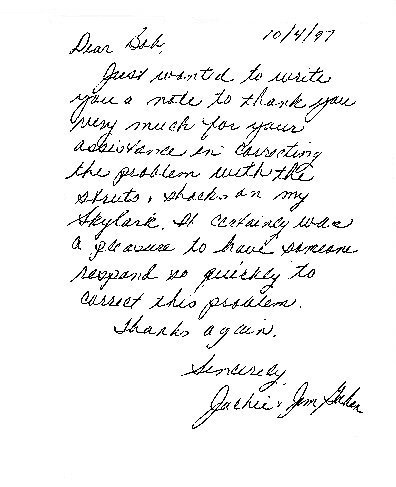 10/4/97
Dear Bob,
Just wanted to write
you a note to thank you
very much for your
assistance in correcting
the problem with the
struts & shocks on my
Skylark. It certainly was
a pleasure to have someone
respond so quickly to
correct this problem.
Thanks again.
Sincerely,
Jackie & Jim